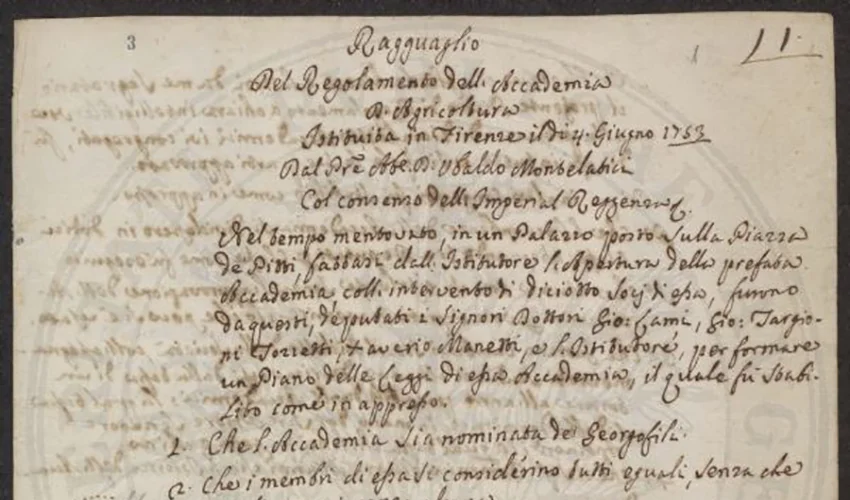 3
11.
Ragguaglio
Del Regolamento dell. Accademia
D. Agricoltura
Istituita in Firenze il dì 4. Giugno 1753
Dal Pre Abe. D. Ubaldo Montelatici
Col consenso dell. Imperial Reggenza.
Nel tempo mentovato, in un Palazzo posto sulla Piazza
de Pitti, fattasi dall. Istitutore l. Apertura della prefata
Accademia coll. intervento di diciotto Socj di essa, furono
da questi, deputati i Signori Dottori Gio: Lami, Gio: Targio-
ni Tozzetti, Xaverio Manetti, e l. Istitutore, per formare
un Piano delle Leggi di essa Accademia, il quale fù stabi-
lito come in appresso.
1. Che l. Accademia sia nominata de Georgofili.
2. Che i membri di essa si considérino tutti eguali, senza che